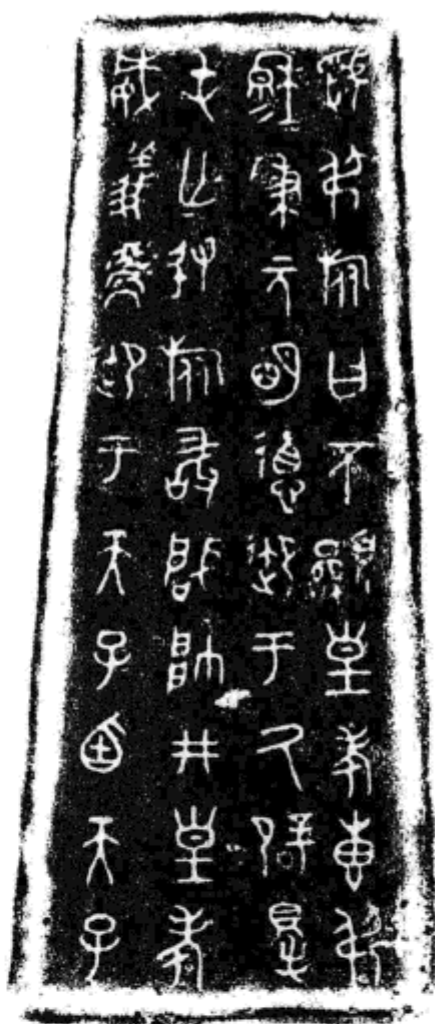 虢叔旅曰不顯皇考叀叔
穆=秉元明德御于厥辟得
屯亡敃旅敢啟帥井皇考
威義御于天子迺天子